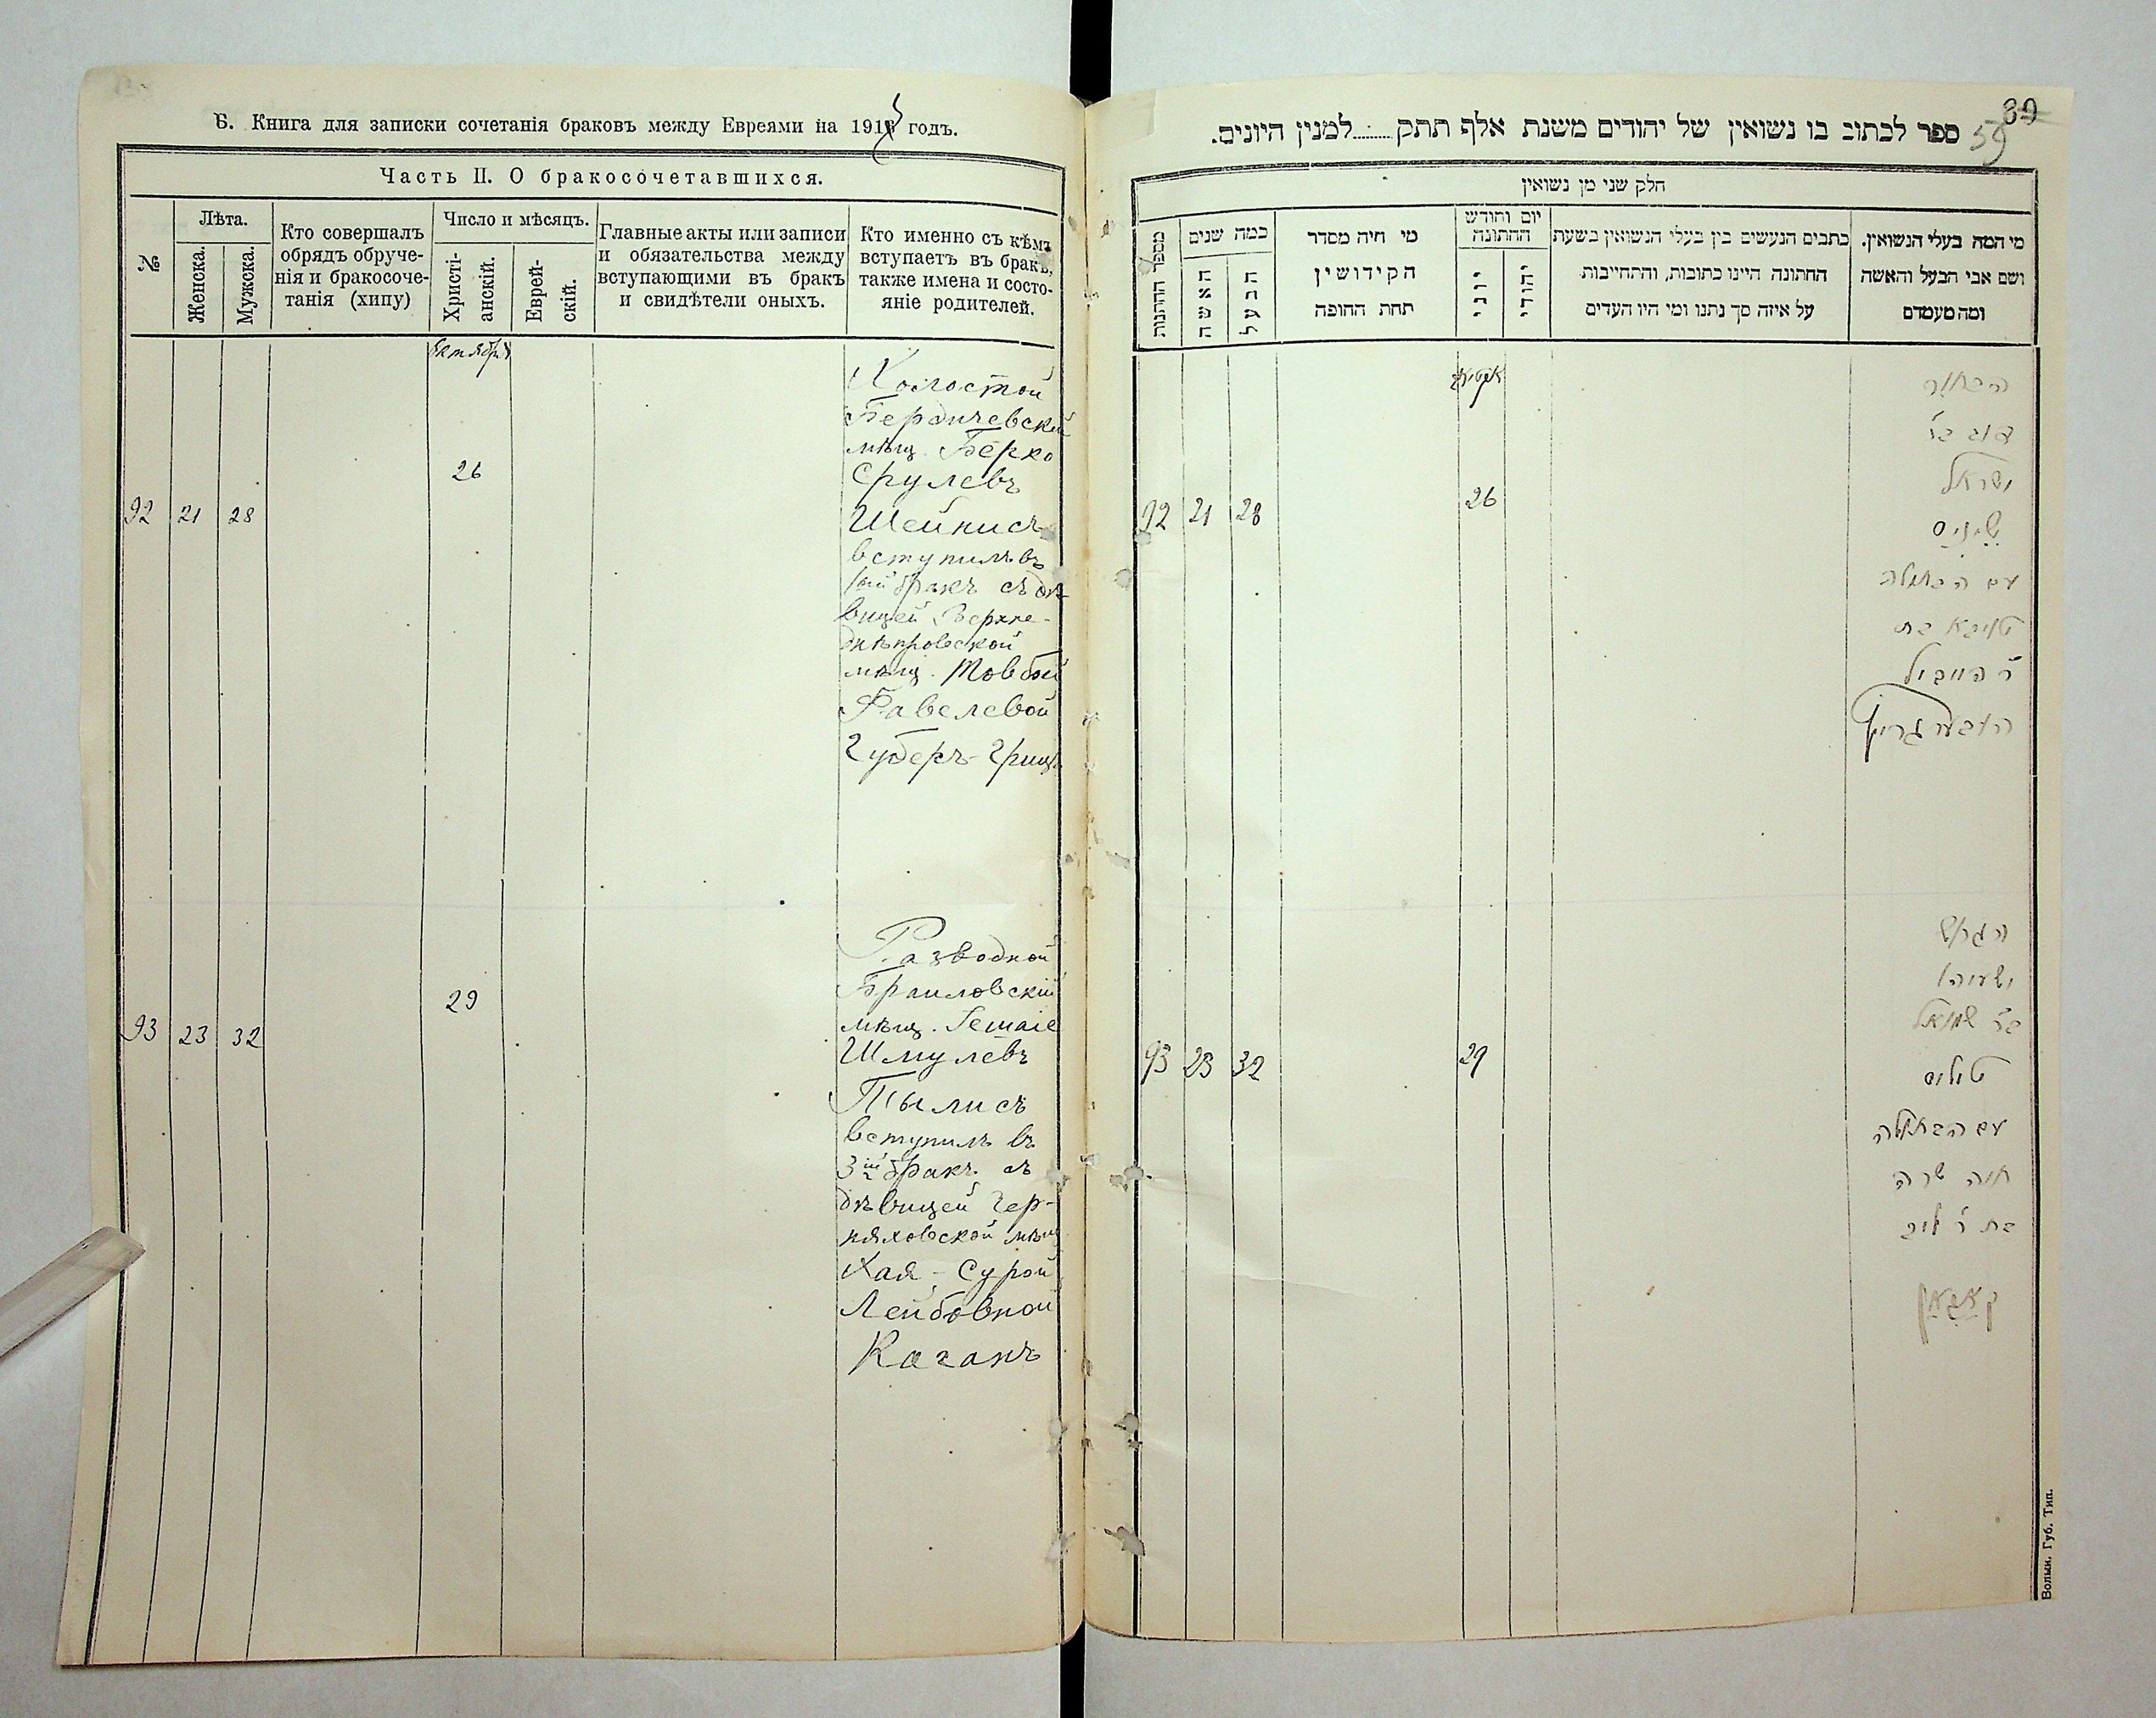 Б. Книга для записки сочетанія браковъ между Евреями на 191 годъ.
Часть II. О бракосочетавшихся.
№
Лѣта.
Женска.
Мужска.
Кто совершалъ
обрядъ обруче-
нія и бракосоче-
танія (хипу)
Число и мѣсяцъ.
Христі-
анскій.
Еврей-
скій.
Главные акты или записи
и обязательства между
вступающими въ бракъ
и свидѣтели оныхъ.
Кто именно съ кѣмъ
вступаетъ въ бракъ,
также имена и состо-
яніе родителей.
Октября
92 21 28
26
Холостой
Бердичевскій
мѣщ. Берко
Срулевъ
Шейнисъ
вступилъ въ
1ый бракъ съ дѣ
вицей Верхне-
днѣпровской
мѣщ. Товбой
Фавелевой
Губеръ-Грицъ
93 23 32
29
Разводной
Браиловскій
мѣщ. Іешаіе
Шмулевъ
Тылисъ
вступилъ въ
3ій бракъ съ
дѣвицей Чер-
няховской мѣщ
Хая-Сурой
Лейбовной
Каганъ
89
59
ספר לכתוב בו נשואין של יהודים משנת אלף תתק.........למנין היונים.
חלק שני מן נשואין
מספר החתונות
כמה שנים
האשה
הבעל
מי חיה מסדר
הקידושין
תחת החופה
יום וחודש
החתונה
יוני
יהודי
כתבים הנעשים בין בעלי הנשואין בשעת
החתונה היינו כתובות, והתחייבות
על איזה סך נתנו ומי היו העדים
מי המה בעלי הנשואין.
ושם אבי הבעל והאשה
ומה מעמדם
92 21 28
26
הבחור
דוב בר
ישראל
שייניס
עם הבתולה
טויבא בת
ר׳
93 23 32
29
הגרוש
ישעיהו
בר שמואל
טיליס
עם הבתולה
חיה שרה
בת ר׳ ליב
קאגאן
Волын. Губ. Тип.